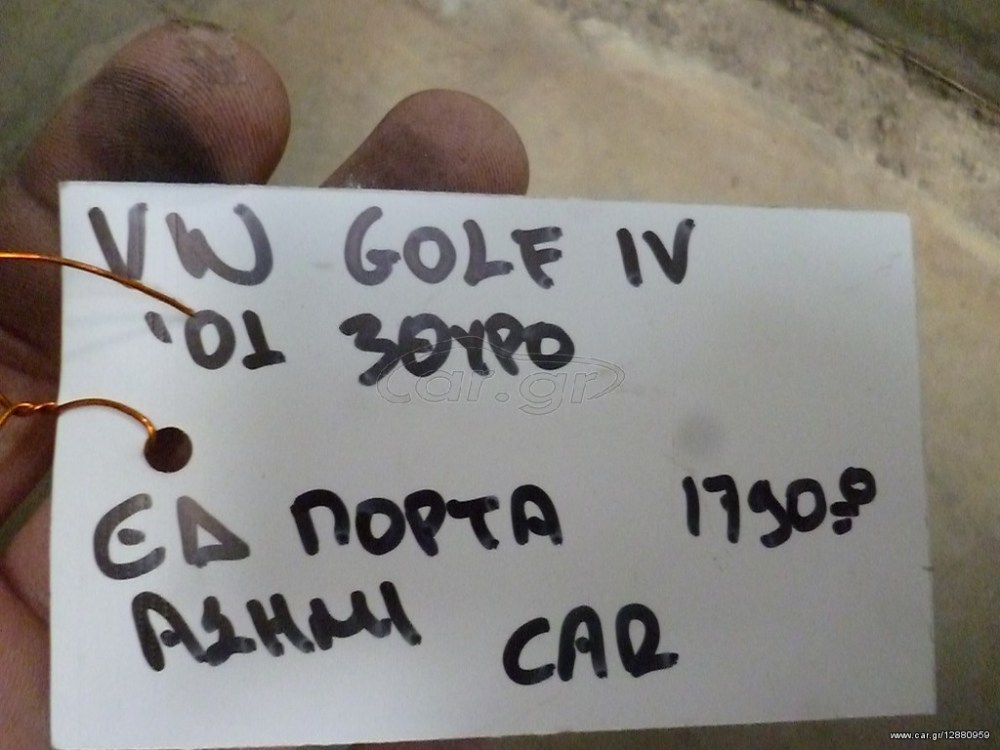 VW GOLF IV
'01 3ΘΥΡΟ
car.gr
ΕΔ ΠΟΡΤΑ
ΑΣΗΜΙ CAR
www.car.gr/12880959